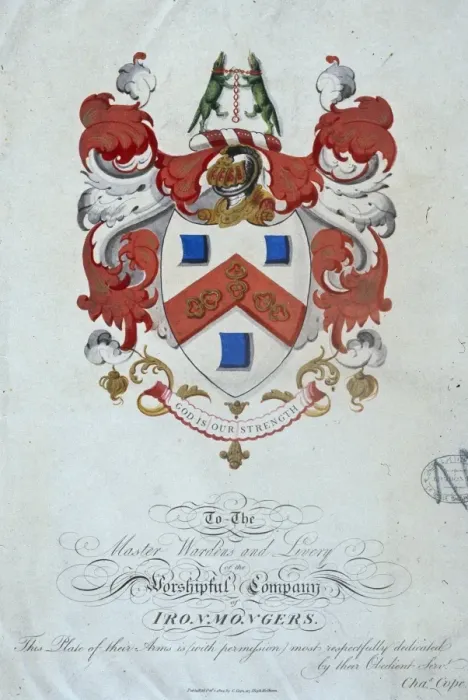 GOD IS OUR STRENGTH
To The
Master Wardens and Livery
of the
Worshipful Company
of
IRONMONGERS.
This Plate of their Arms is (with permission) most respectfully dedicated
by their Obedient Servt.
Chas. Cope